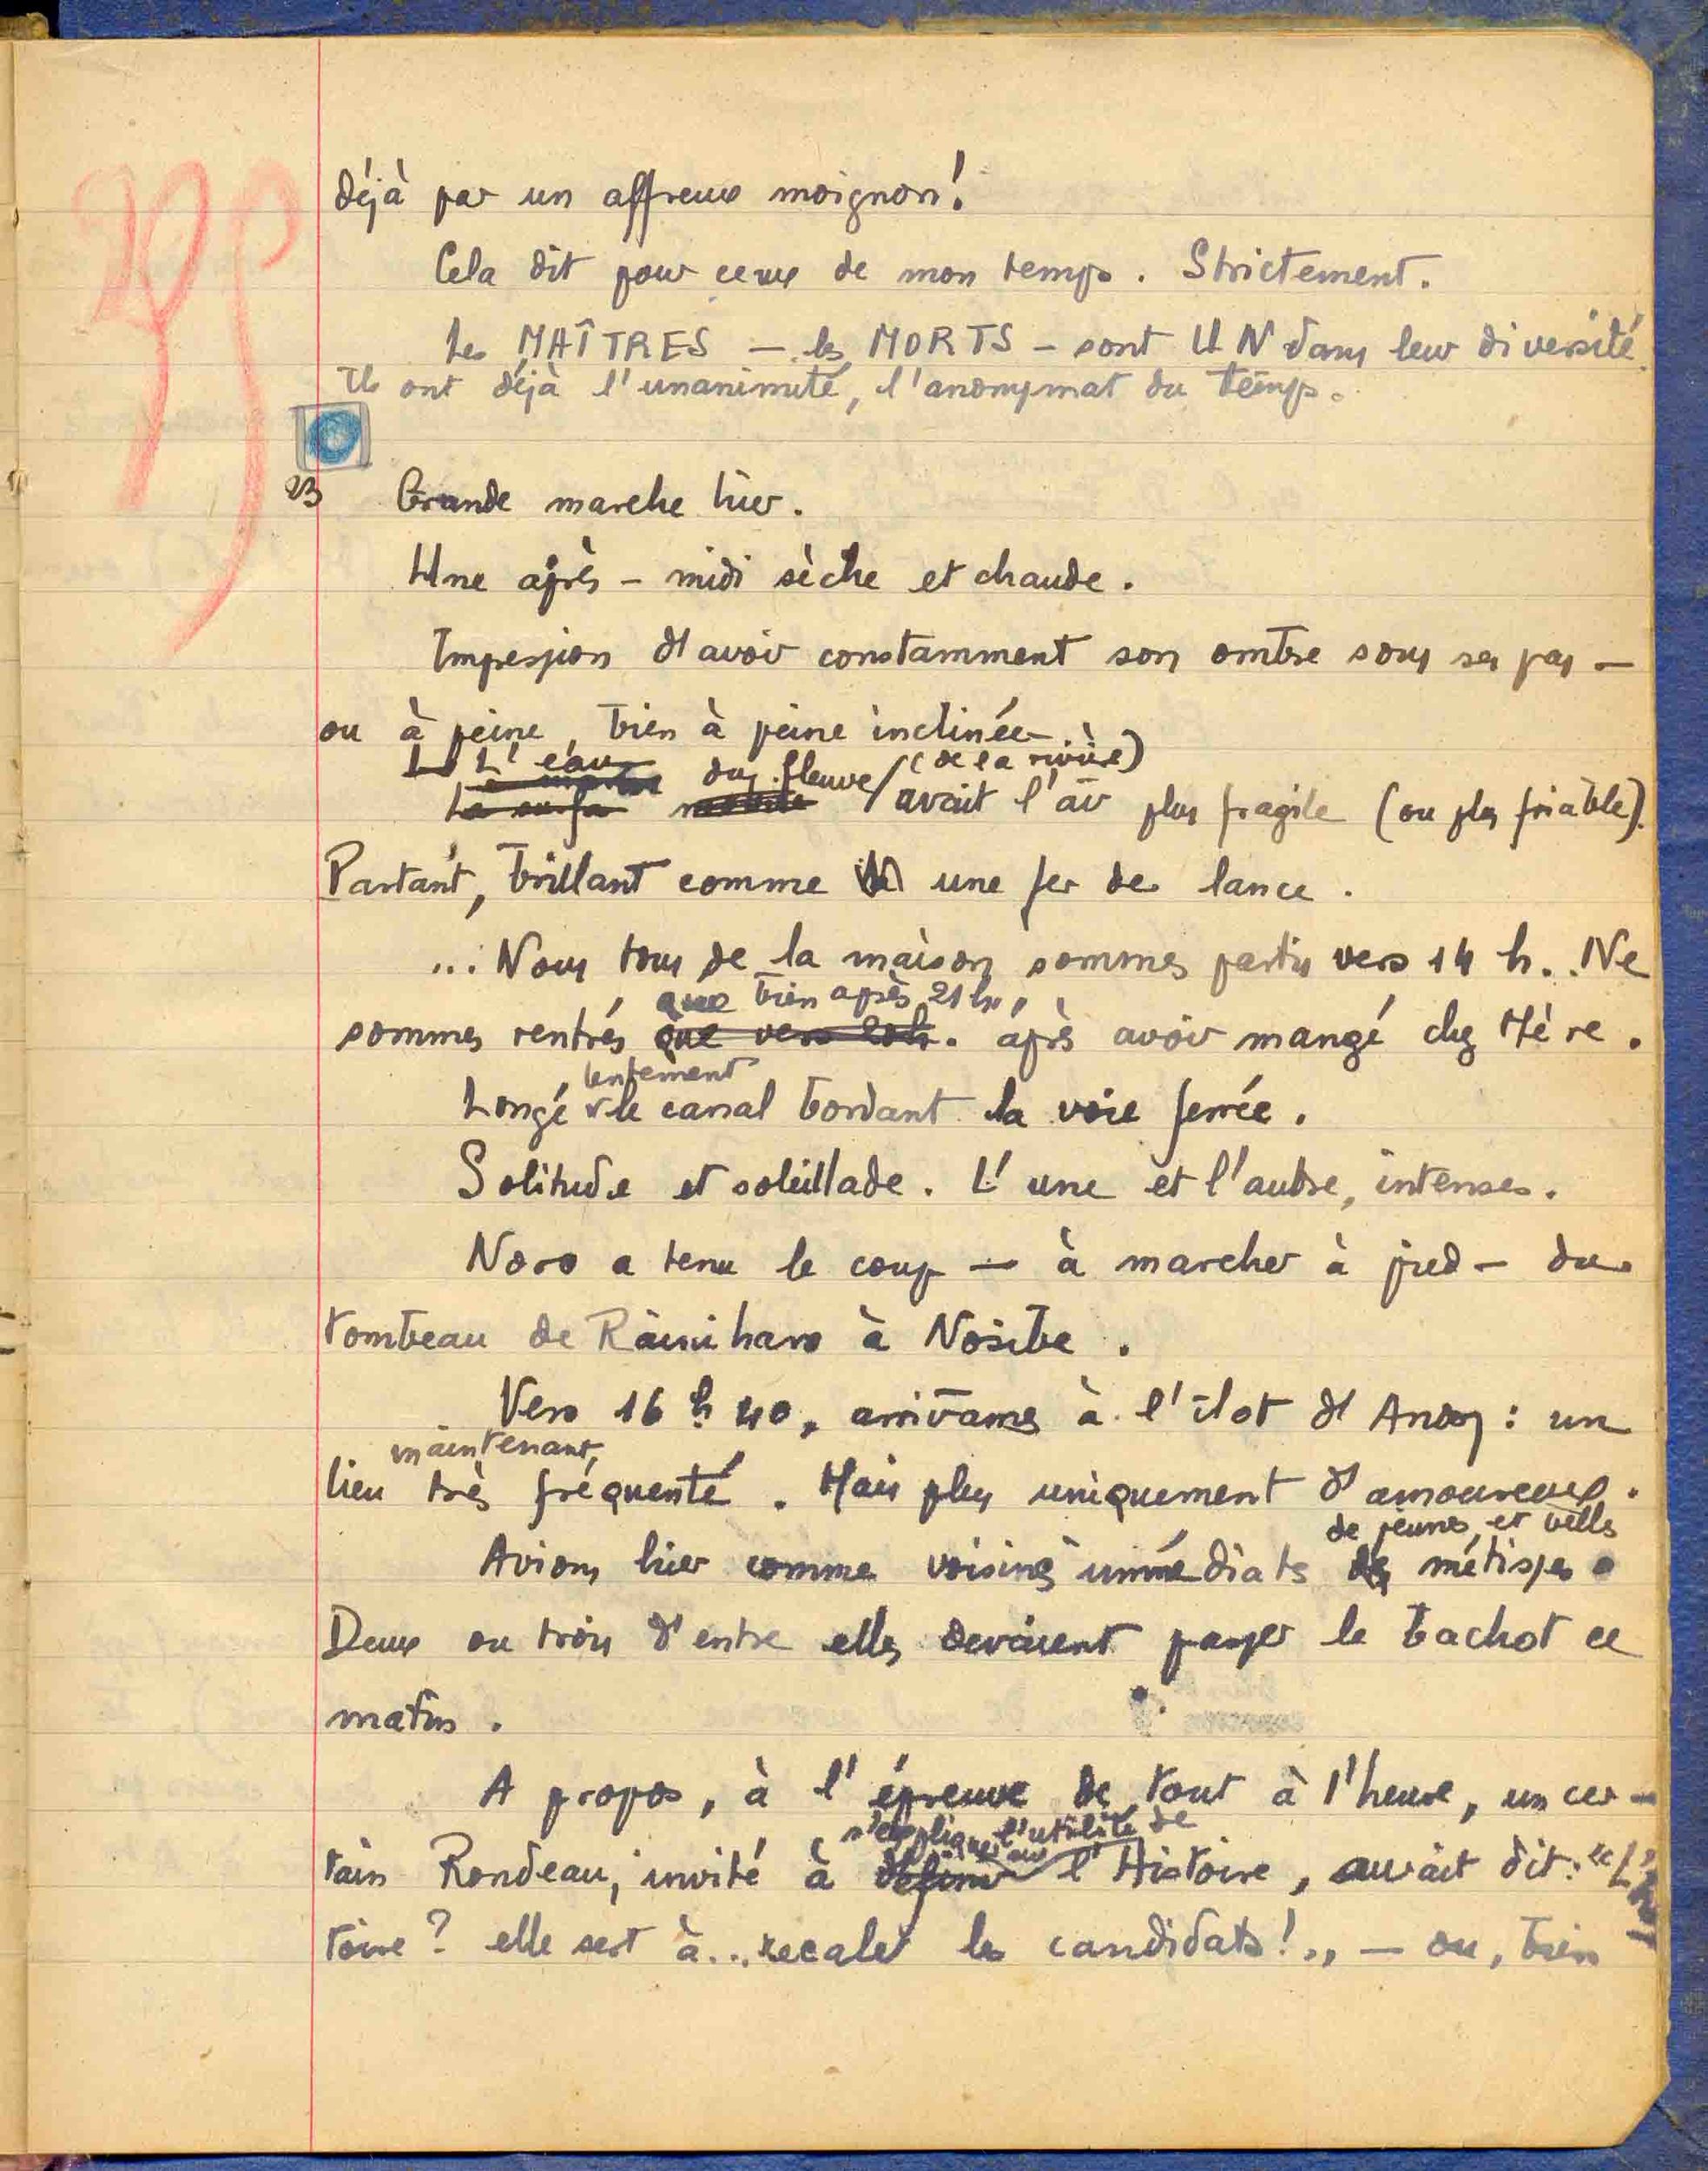 déjà par un affreux moignon!
Cela dit pour ceux de mon temps. Strictement.
Les MAÎTRES — les MORTS — sont UN dans leur diversité.
Ils ont déjà l'unanimité, l'anonymat du temps.
23 Grande marche hier.
Une après-midi sèche et chaude.
Impression d'avoir constamment son ombre sous ses pas —
ou à peine, bien à peine inclinée.
L'eau du fleuve (de la rivière)
avait l'air plus fragile (ou plus friable).
Partant, brillant comme une fer de lance.
... Nous tous de la maison sommes partis vers 14 h. Ne
que bien après 21 h,
sommes rentrés que vers 20h. après avoir mangé chez Mère.
lentement
Longé le canal bordant la voie ferrée.
Solitude et soleillade. L'une et l'autre, intenses.
Noro a tenu le coup — à marcher à pied — du
tombeau de Rainiharo à Nosibe.
Vers 16 h 40, arrivâmes à l'îlot d'Anosy : un
maintenant,
lieu très fréquenté. Mais plus uniquement d'amoureux.
de jeunes et belles
Avions hier comme voisines immédiats des métisses.
Deux ou trois d'entre elles devaient passer le bachot ce
matin.
A propos, à l'épreuve de tout à l'heure, un cer-
s'expliquer sur l'utilité de
tain Rondeau, invité à définir l'Histoire, aurait dit : "L'His
toire ? elle sert à... recaler les candidats!,, — ou, bien